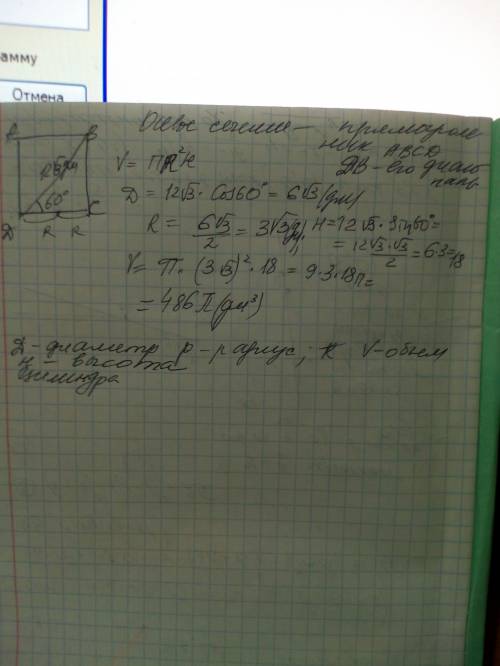 рамму
Отмена
Осевое сечение – прямоуголь
ник ABCD
DB – его диаго
наль
V = ПR²H
D = 12√3 · Cos60° = 6√3 (дм)
R = 6√3/2 = 3√3 дм, H = 12√3 · Sin60° =
= 12√3 · √3/2 = 6·3 = 18
V = П · (3√3)² · 18 = 9 · 3 · 18П =
= 486П (дм³)
B
60°
D R R C
D – диаметр R – радиус; V – объем
H – высота
цилиндра